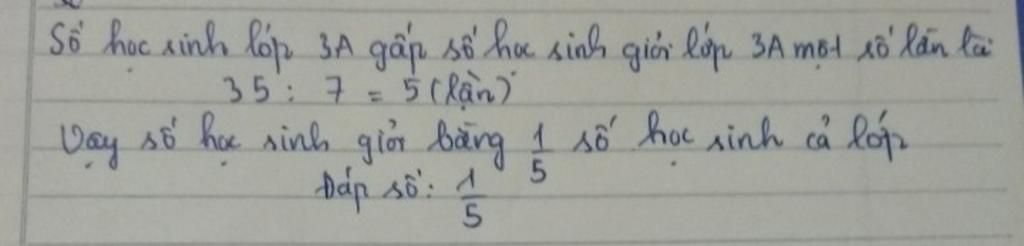 Số học sinh lớp 3A gấp số học sinh giỏi lớp 3A một số lần là
35 : 7 = 5 (lần)
Vậy số học sinh giỏi bằng 1/5 số học sinh cả lớp
Đáp số: 1/5